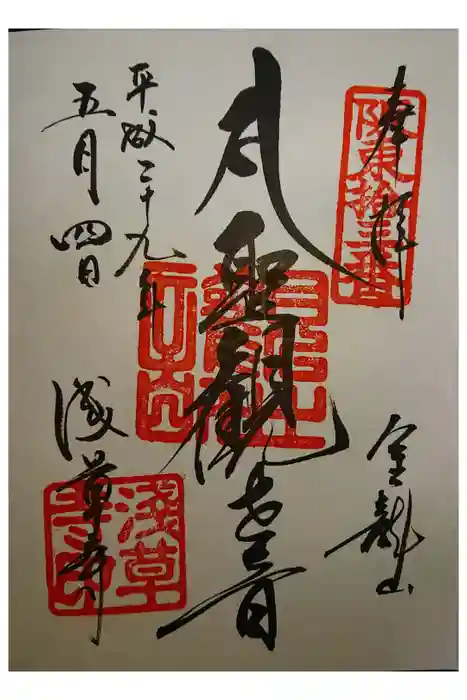 奉拝
坂東拾三番
金龍山
大聖観世音
平成二十九年
五月四日
浅草寺
淺草寺印